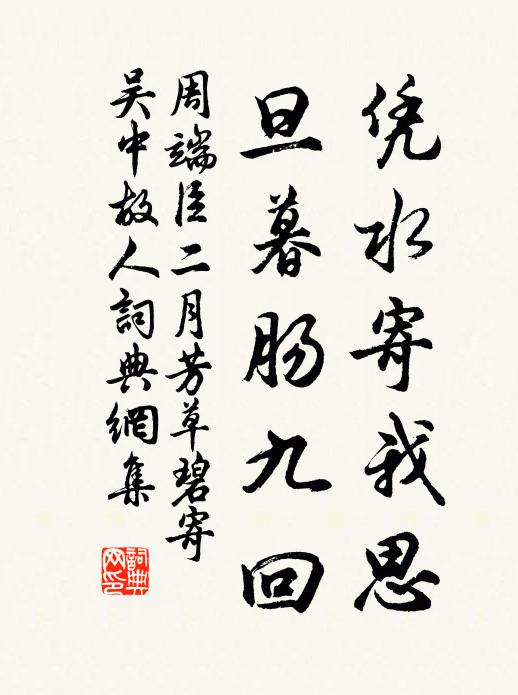 凭水寄我思
旦暮肠九回
周端臣二月芳草碧寄
吴中故人詞典網集
詞典网印